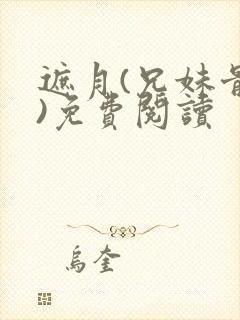 遮月(兄妹骨
)免費閱讀
烏奎